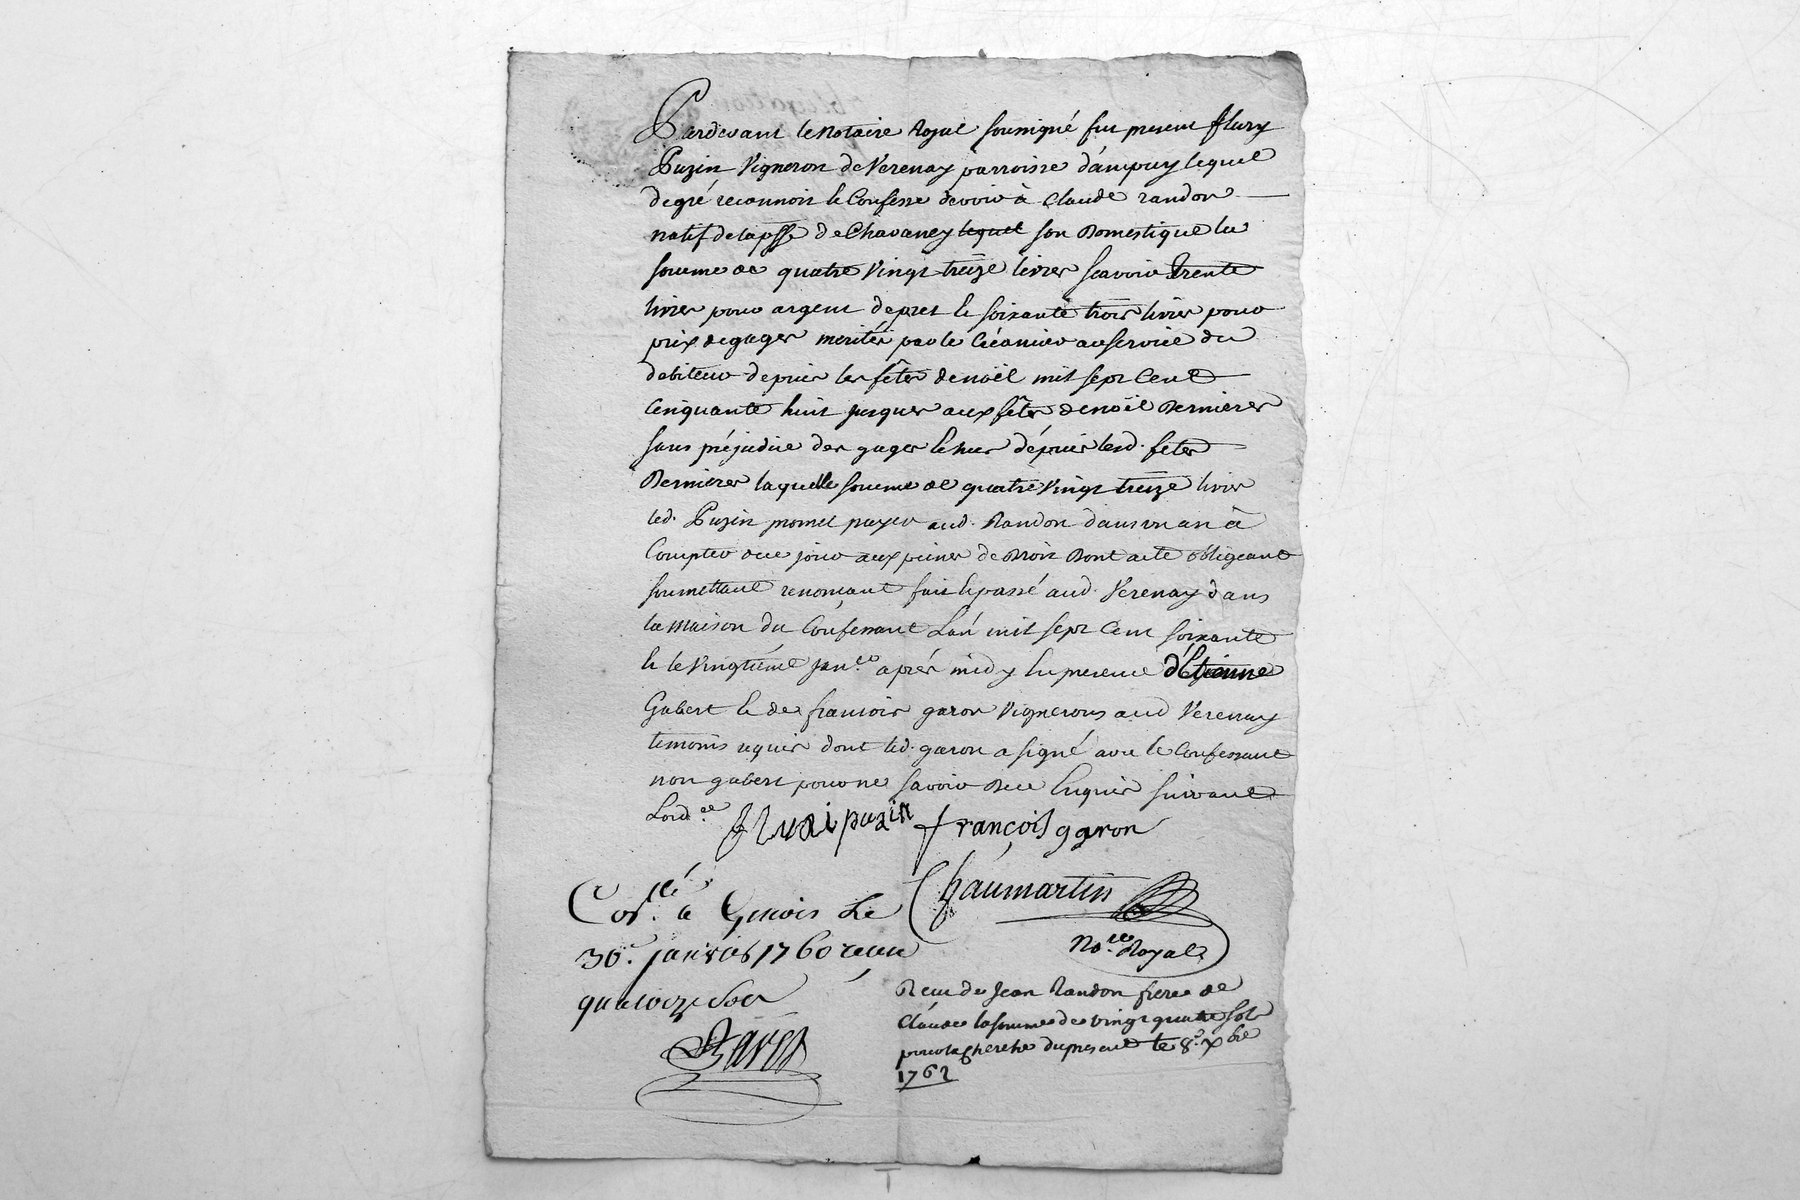 Pardevant le Notaire Royal soussigné fut present fleury
Puzin Vigneron de Verenay parroisse d'ampuy lequel
de gré reconnoit & Confesse devoir à Claude randon
natif de la psse de Chavaney lequel son Domestique la
somme de quatre Vingt treize livres scavoir trente
livres pour argent de pret & soixante trois livres pour
prix de gages merités par le Créancier au service du
debiteur depuis les fêtes de noël mil sept Cent
Cenquante huit jusques aux fêtes de noël Dernieres
sans préjudice des gages &chus dépuis lesd. fêtes
Dernieres laquelle somme de quatre Vingt treize livres
led. Puzin promet payer aud. Randon dans un an à
Compter de ce jour aux peines de Droit Dont acte obligeant
soumettant renonçant fait & passé aud. Verenay dans
la maison du Confessant L'an mil sept Cent soixante
& le Vingtième janer après midy En presence d'Etienne
Gabert & de francois garon Vignerons aud Verenay
temoins requis dont led. garon a signé avec le Confessant
non gabert pour ne savoir De ce Enquis suivant
Lordce
fluri puzin françois garon
Chaumartin
Nore Royal
Collé a Givois Le
30e janvier 1760 recu
quatorze sols
Recu de Jean Randon frere de
Claude la somme de vingt quatre sols
pour la cherche du present le 8e xbre
1762